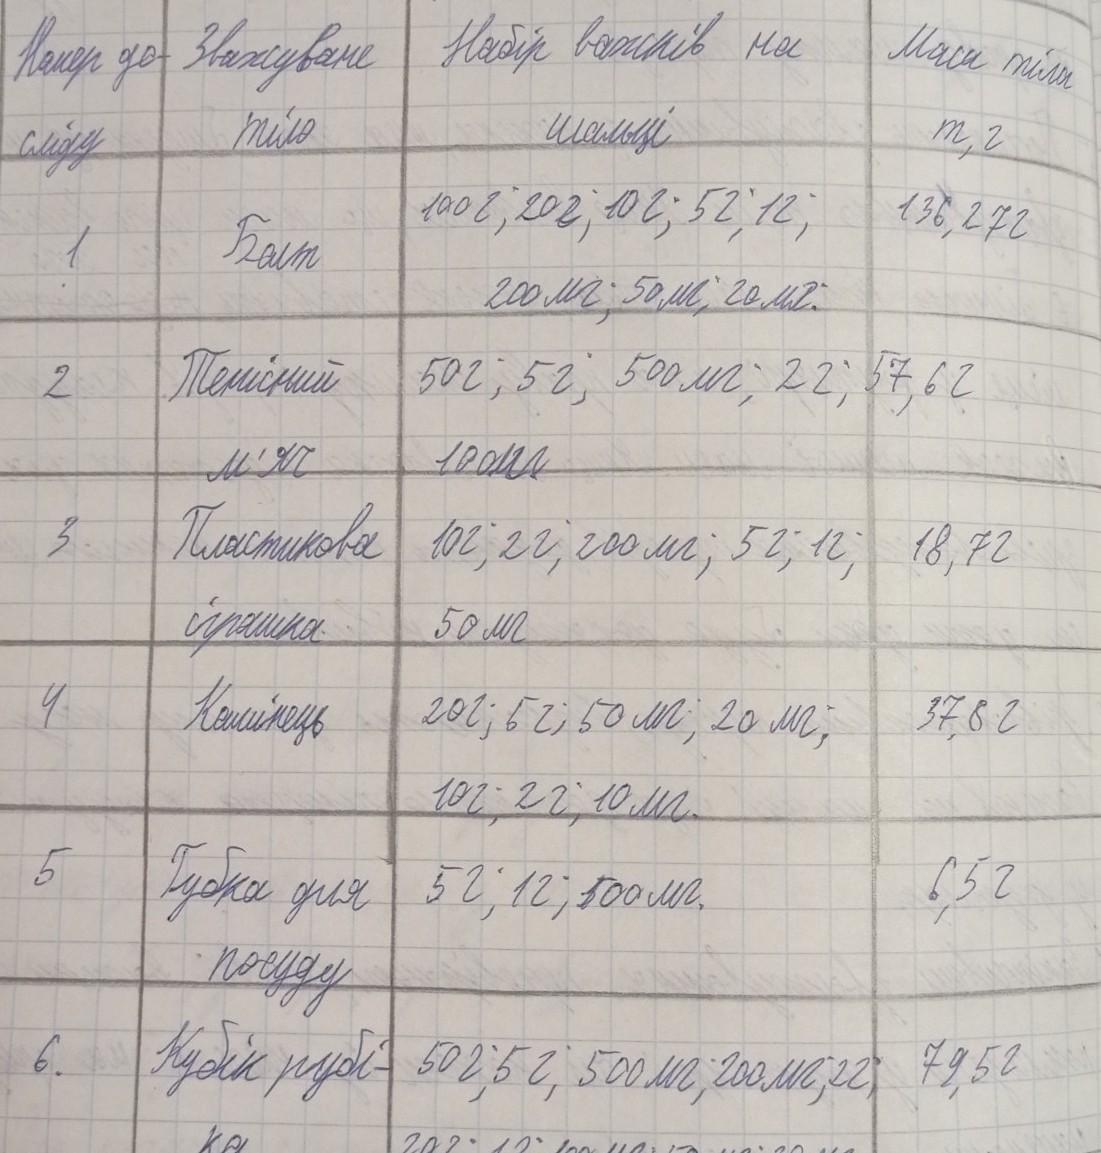 Номер до- Зважуване Набір важків на Маса тіла
сліду тіло шальці m, г
1 Болт 100г; 20г; 10г; 5г; 1г; 136,27г
200мг; 50мг; 20мг.
2 Тенісний 50г; 5г; 500мг; 2г; 57,6г
м'яч 100мг
3 Пластикова 10г; 2г; 200мг; 5г; 1г; 18,7г
іграшка 50мг
4 Камінець 20г; 5г; 50мг; 20мг; 37,8г
10г; 2г; 10мг.
5 Губка для 5г; 1г; 500мг. 6,5г
посуду
6. Кубік рубі- 50г; 5г; 500мг; 200мг; 2г; 79,5г
ка 20г; 1г; 100мг; 50мг; 20мг